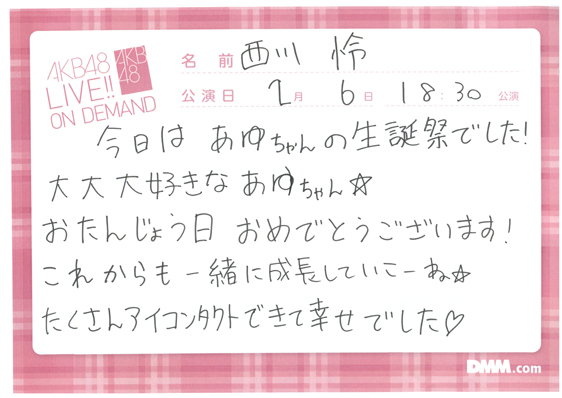 AKB48
LIVE!!
ON DEMAND
AKB
48
名前 西川 怜
公演日 2月 6日 18:30 公演
今日は あゆちゃんの生誕祭でした!
大大大好きな あゆちゃん☆
おたんじょう日 おめでとうございます!
これからも 一緒に成長していこーね☆
たくさんアイコンタクトできて幸せでした♡
DMM.com